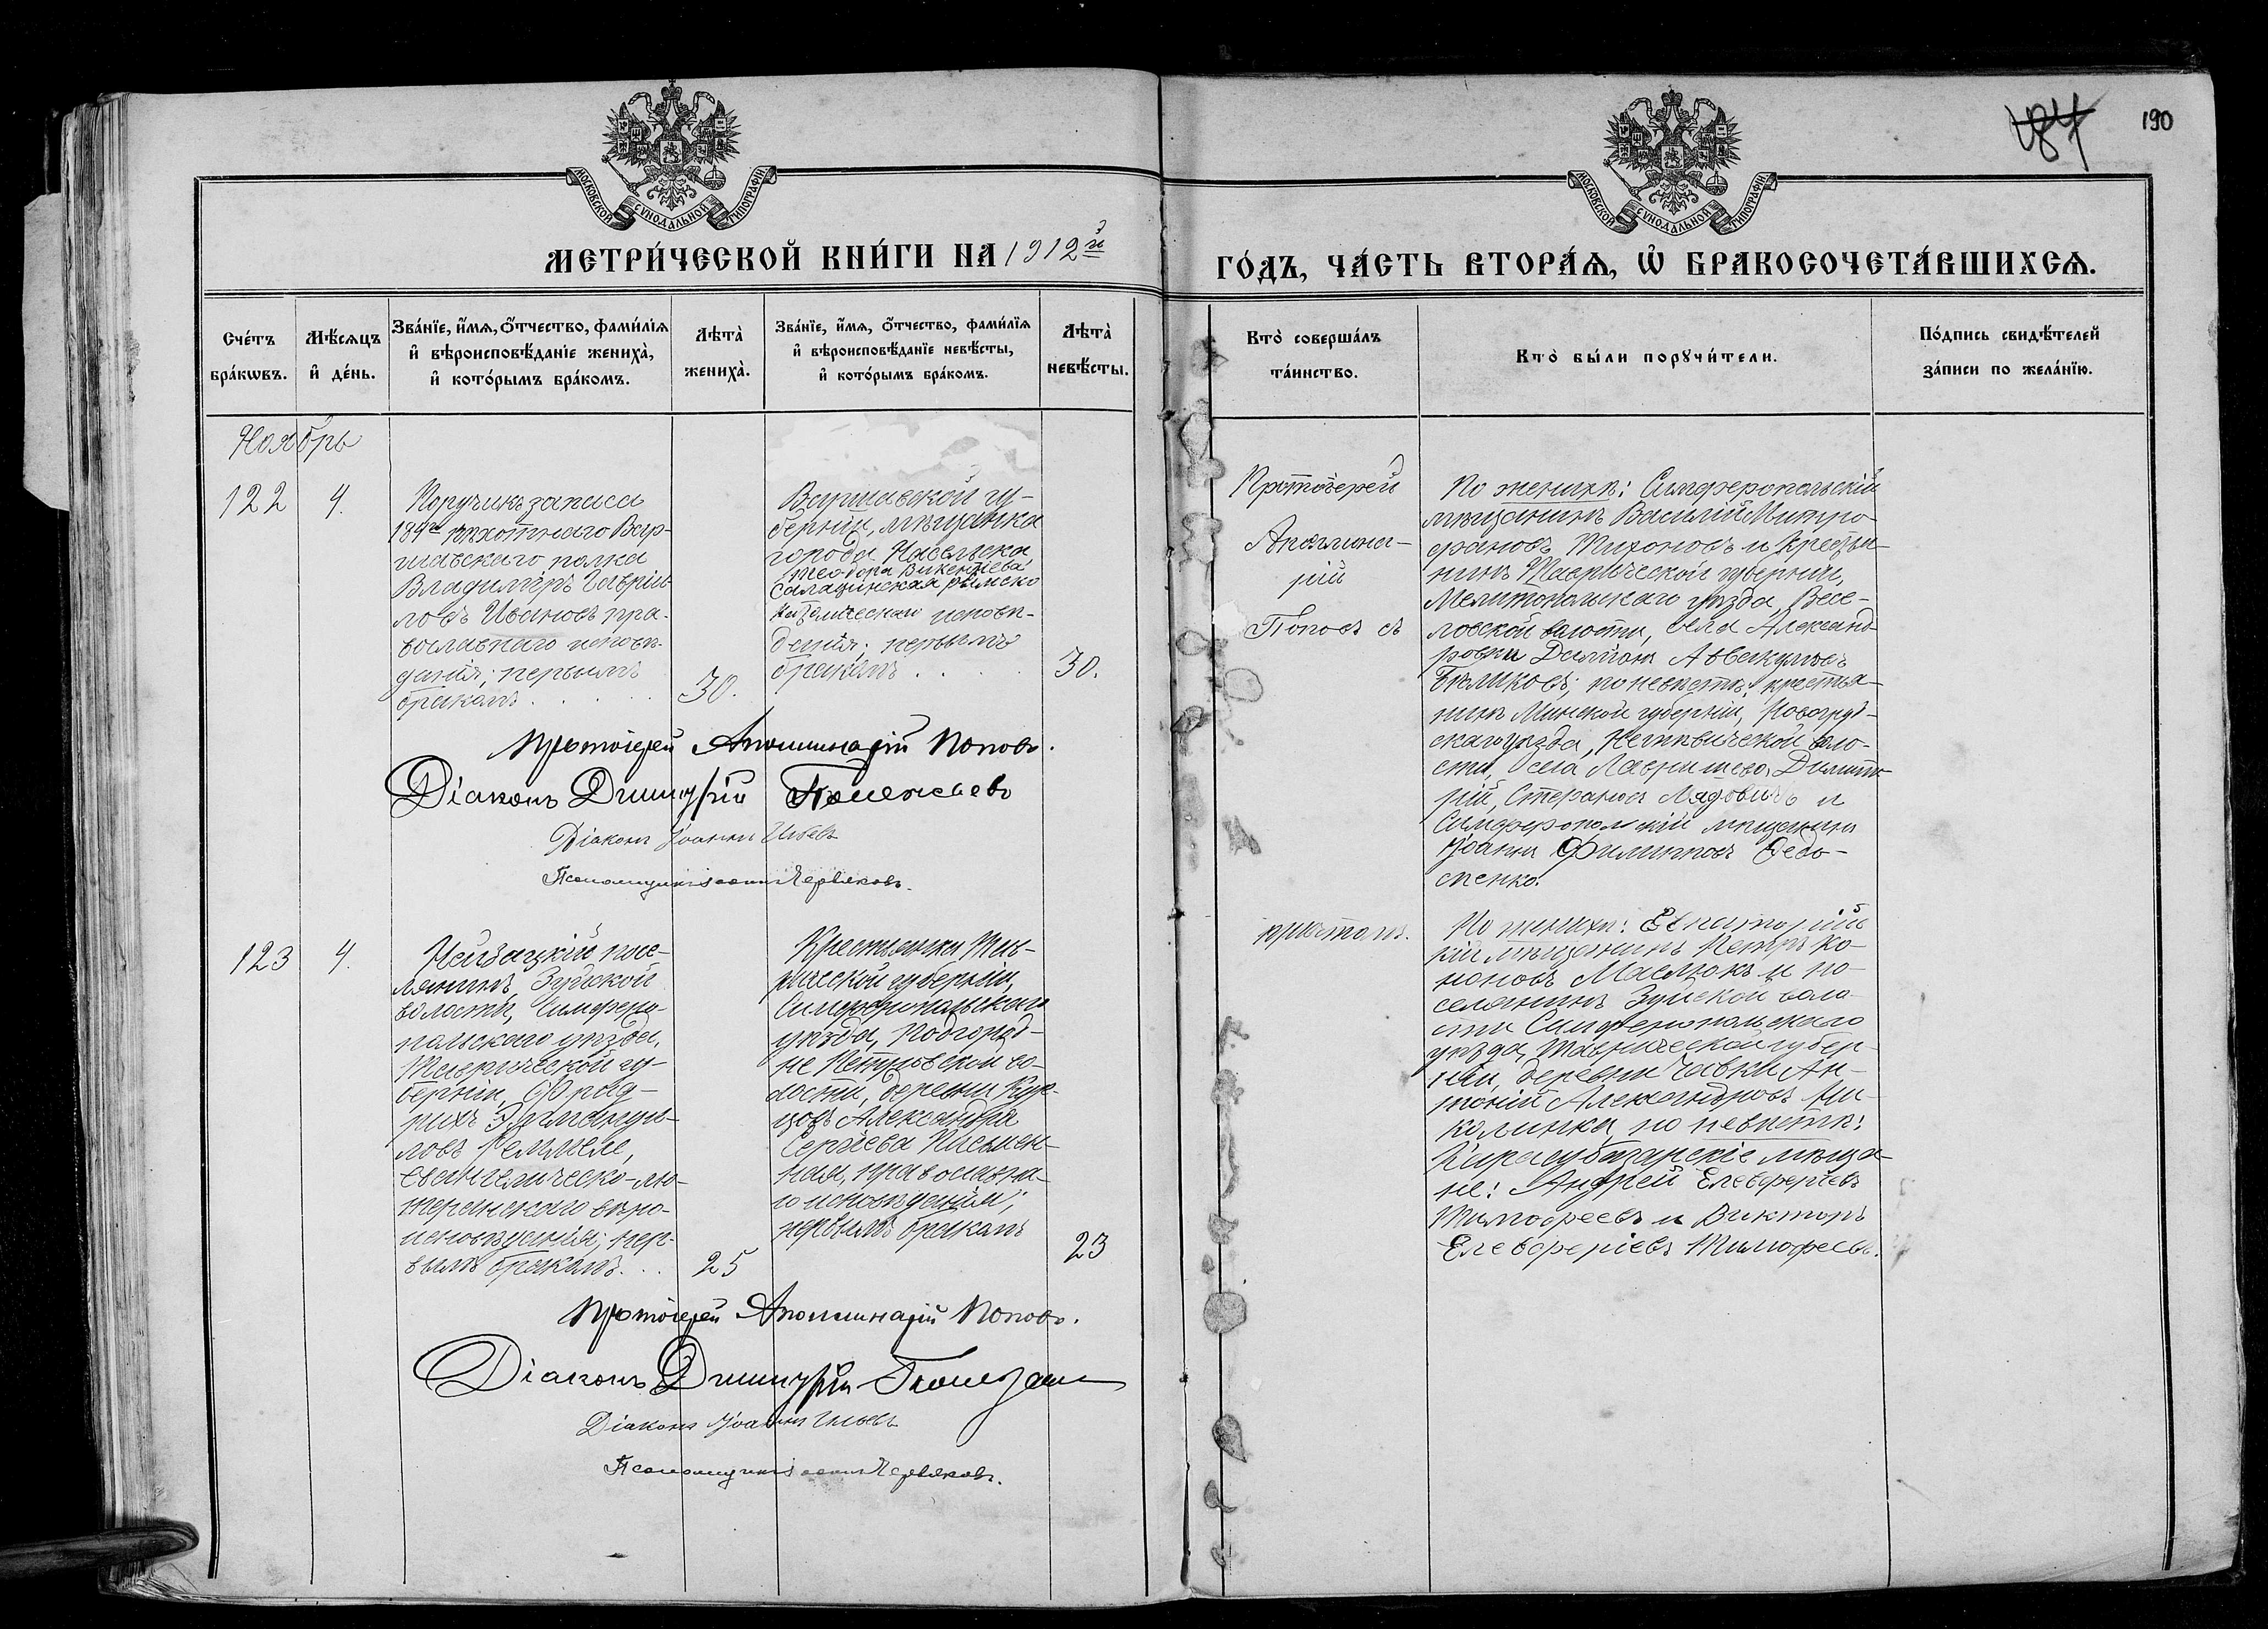 190
МОСКОВСКОЙ СѴНОДАЛЬНОЙ ТИПОГРАФІИ
МОСКОВСКОЙ СѴНОДАЛЬНОЙ ТИПОГРАФІИ
МЕТРИ́ЧЕСКОЙ КНИ́ГИ НА 1912й
ГО́ДЪ, ЧА́СТЬ ВТОРА́Ѧ, Ѡ҆ БРАКОСОЧЕТА́ВШИХСѦ.
Сче́тъ
бра́кѡвъ.
Мѣ́сѧцъ
и҆ де́нь.
Зва́нїе, и҆́мѧ, ѻ҆́тчество, фами́лїѧ
и҆ вѣроисповѣ́данїе жениха̀,
и҆ кото́рымъ бра́комъ.
Лѣта̀
жениха̀.
Зва́нїе, и҆́мѧ, ѻ҆́тчество, фами́лїѧ
и҆ вѣроисповѣ́данїе невѣ́сты,
и҆ кото́рымъ бра́комъ.
Лѣта̀
невѣ́сты.
Кто̀ соверша́лъ
та́инство.
Кто̀ бы́ли порꙋчи́тели.
По́дпись свидѣ́телей
за́писи по жела́нїю.
Ноябрь
122
4.
Поручикъ запаса
184го пѣхотнаго Вар-
шавскаго полка
Владиміръ Гавріи-
ловъ Ивановъ пра-
вославнаго исповѣ-
данія; первымъ
бракомъ
30.
Варшавской гу-
берніи, мѣщанка
города Насельска
Теодора Викентіева
римско
католическаго исповѣ-
данія; первымъ
бракомъ
30.
Протоіерей
Аполлина-
рій
Поповъ съ
По женихѣ: Симферопольскій
мѣщанинъ Василій Митро-
фановъ Тихоновъ и крестья-
нинъ Таврической губерніи,
Мелитопольскаго уѣзда, Весе-
ловской волости, села Александ-
ровки Даміанъ Аввакумовъ
Бѣликовъ; по невѣстѣ: крестья-
нинъ Минской губерніи, Новогруд-
скаго уѣзда, воло-
сти, села Лавришево, Димит-
рій Стефановъ Лядовичъ и
Симферопольскій мѣщанинъ
Іоаннъ Филипповъ Федо-
сенко.
Протоіерей Аполлинарій Поповъ.
Діаконъ Димитрій
Діаконъ Іоаннъ
Псаломщикъ Червяковъ.
123
4.
Нейзацкій посе-
лянинъ Зуйской
волости, Симферо-
польскаго уѣзда,
Таврической гу-
берніи, Фрид-
рихъ Эммануи-
ловъ Реммеле,
евангелическо-лю-
теранскаго вѣро-
исповѣданія; пер-
вымъ бракомъ
25
Крестьянка Тав-
рической губерніи,
Симферопольскаго
уѣзда, Подгород-
не Петровской во-
лости, деревни Кур-
цовъ Александра
Сергѣева Письмен-
ная, православна-
го исповѣданія;
первымъ бракомъ
23
причтомъ.
По женихѣ: Евпаторій-
кій мѣщанинъ Петръ Ко-
ноновъ Маслюкъ и по-
селянинъ Зуйской воло-
сти Симферопольскаго
уѣзда, Таврической губер-
ніи, деревни Чавки Ан-
тоній Александровъ Ми-
колинка, по невѣстѣ:
Карасубазарскіе мѣща-
не: Андрей Елевферіевъ
Тимофеевъ и Викторъ
Елевферіевъ Тимофеевъ.
Протоіерей Аполлинарій Поповъ.
Діаконъ Димитрій
Діаконъ Іоаннъ
Псаломщикъ Червяковъ.